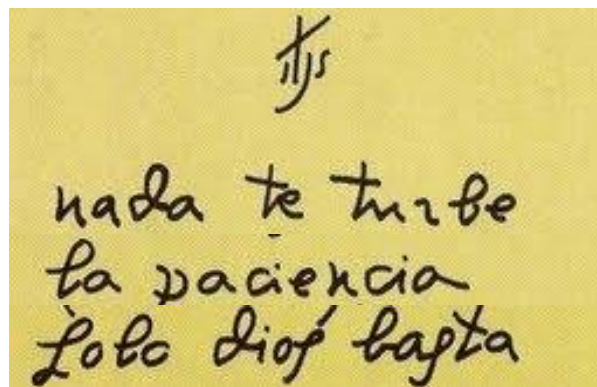 jhs
nada te turbe
la paciencia
Solo dios basta